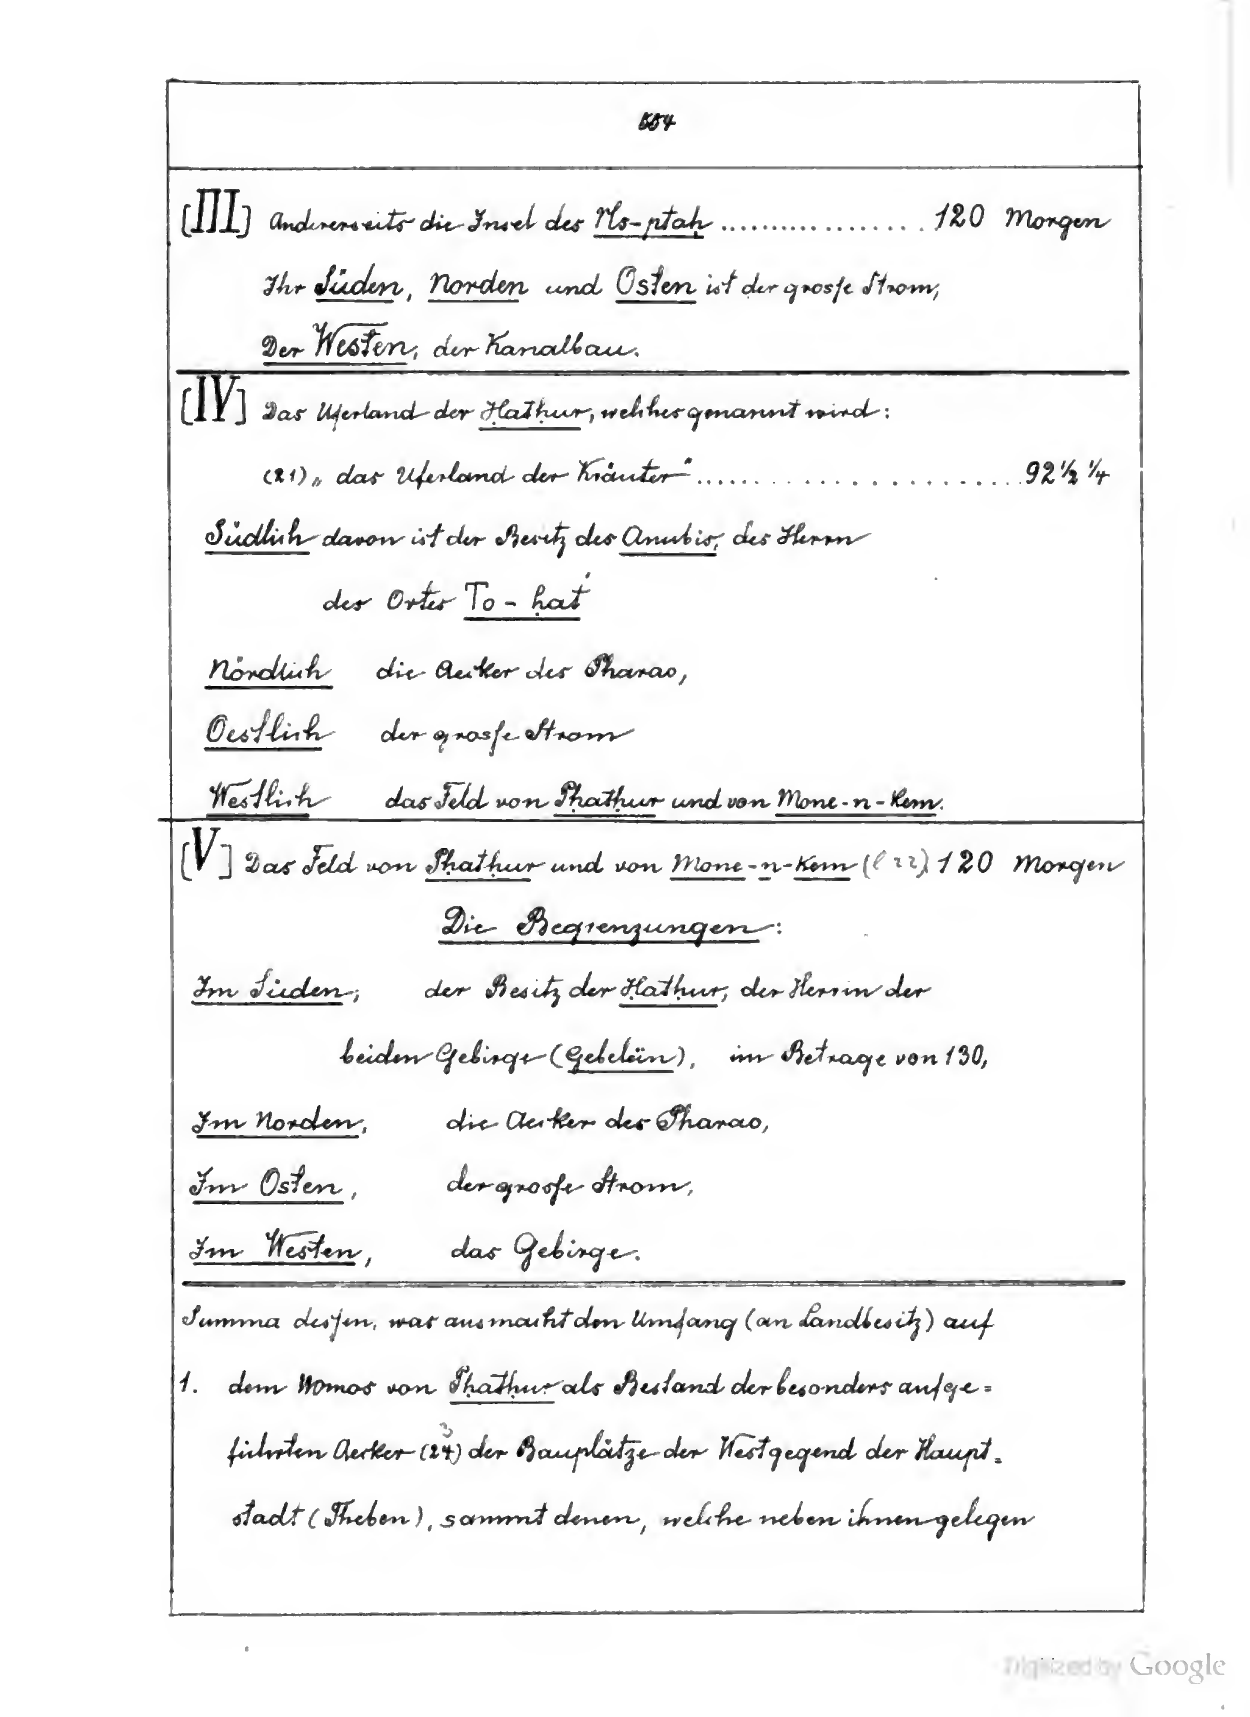 554
[III] Andererseits die Insel des Ms-ptaḥ .................. 120 Morgen
Ihr Süden, Norden und Osten ist der grosse Strom,
Der Westen, der Kanalbau.
[IV] Das Uferland der Ḥatḥur, welches genannt wird:
(21) „das Uferland der Kräuter“ ........................ 92 ½ ¼
Südlich davon ist der Besitz des Anubis, des Herrn
des Ortes To-ḥat'
Nördlich die Aecker des Pharao,
Oestlich der grosse Strom
Westlich das Feld von Pḥatḥur und von Mone-n-Kem.
[V] Das Feld von Pḥatḥur und von Mone-n-Kem (l 22) 120 Morgen
Die Begrenzungen:
Im Süden, der Besitz der Ḥatḥur, der Herrin der
beiden Gebirge (Gebeleïn), im Betrage von 130,
Im Norden, die Aecker des Pharao,
Im Osten, der grosse Strom,
Im Westen, das Gebirge.
Summa dessen, was ausmacht den Umfang (an Landbesitz) auf
1. dem Nomos von Pḥatḥur als Bestand der besonders aufge=
führten Aecker (24) der Bauplätze der Westgegend der Haupt=
stadt (Theben), sammt denen, welche neben ihnen gelegen
Digitized by Google